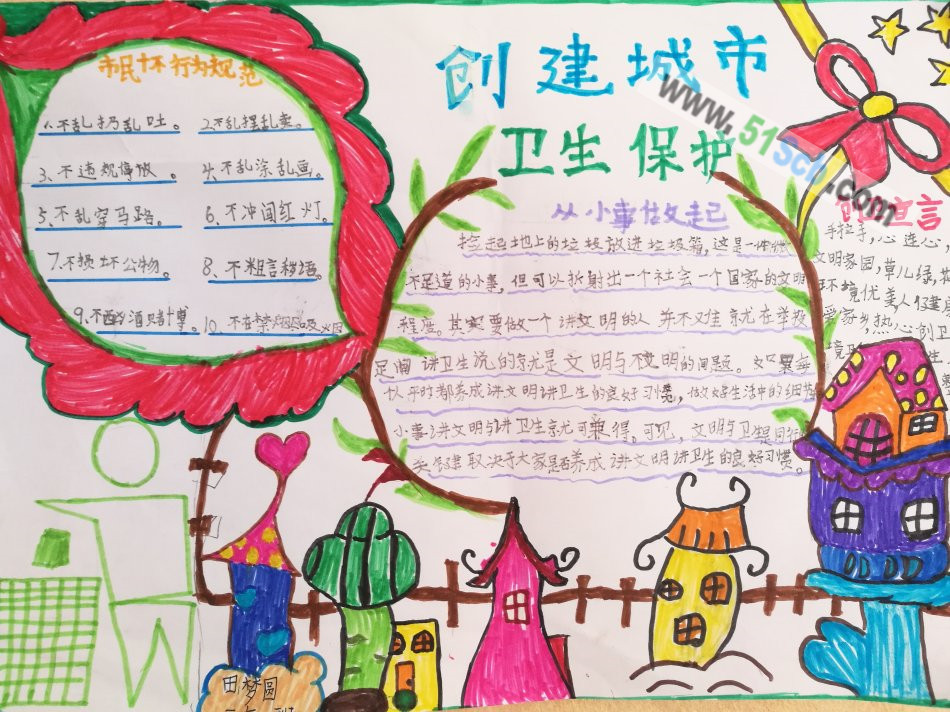 创建城市
卫生保护
从小事做起
市民十不行为规范
1.不乱扔乱吐。 2.不乱摆乱卖。
3.不违规停放。 4.不乱涂乱画。
5.不乱穿马路。 6.不冲闯红灯。
7.不损坏公物。 8.不粗言秽语。
9.不酗酒赌博。 10.不在禁烟区吸火因
捡起地上的垃圾放进垃圾箱,这是一件微
不足道的小事,但可以折射出一个社会一个国家的文明
程度。其实要做一个讲文明的人并不难就在举投
足间讲卫生流的就是文明与不文明的问题。如果每
从平时都养成讲文明讲卫生的良好习惯,做好生活中的细节
小事讲文明与讲卫生就可兼得。可见,文明与卫生是同行
关键取决于大家是否养成讲文明讲卫生的良好习惯。
宣言
手拉手,心连心
文明家园,草儿绿,
环境优美人健
爱家乡,热心创卫
www.51Scb.com
田梦圆